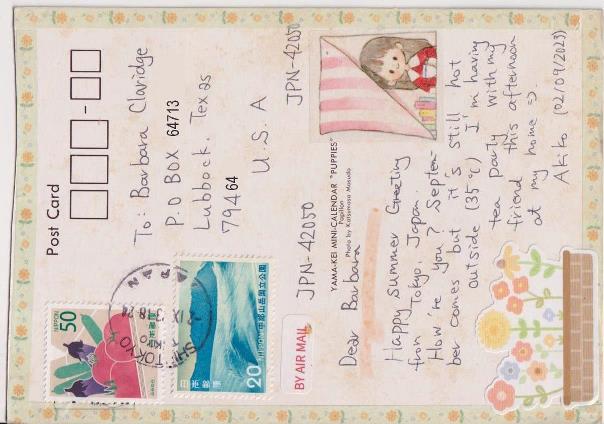 Post Card
To: Barbara Claridge
P.O BOX 64713
Lubbock. Texas
79464
U.S.A
JPN-42050
50
NIPPON
20
日本郵便
NIPPON
中部山岳国立公園
TOKYO
BY AIR MAIL
YAMA-KEI MINI-CALENDAR "PUPPIES"
Papillon
Photo by Katsumasa Masuda
JPN-42050
Dear Barbara
Happy Summer Greeting
from Tokyo, Japan.
How're you? Septem-
ber comes but it's still hot
outside (35℃) I'm having
tea party with my
friend this afternoon
at my home :).
Akiko (02/09/2023)